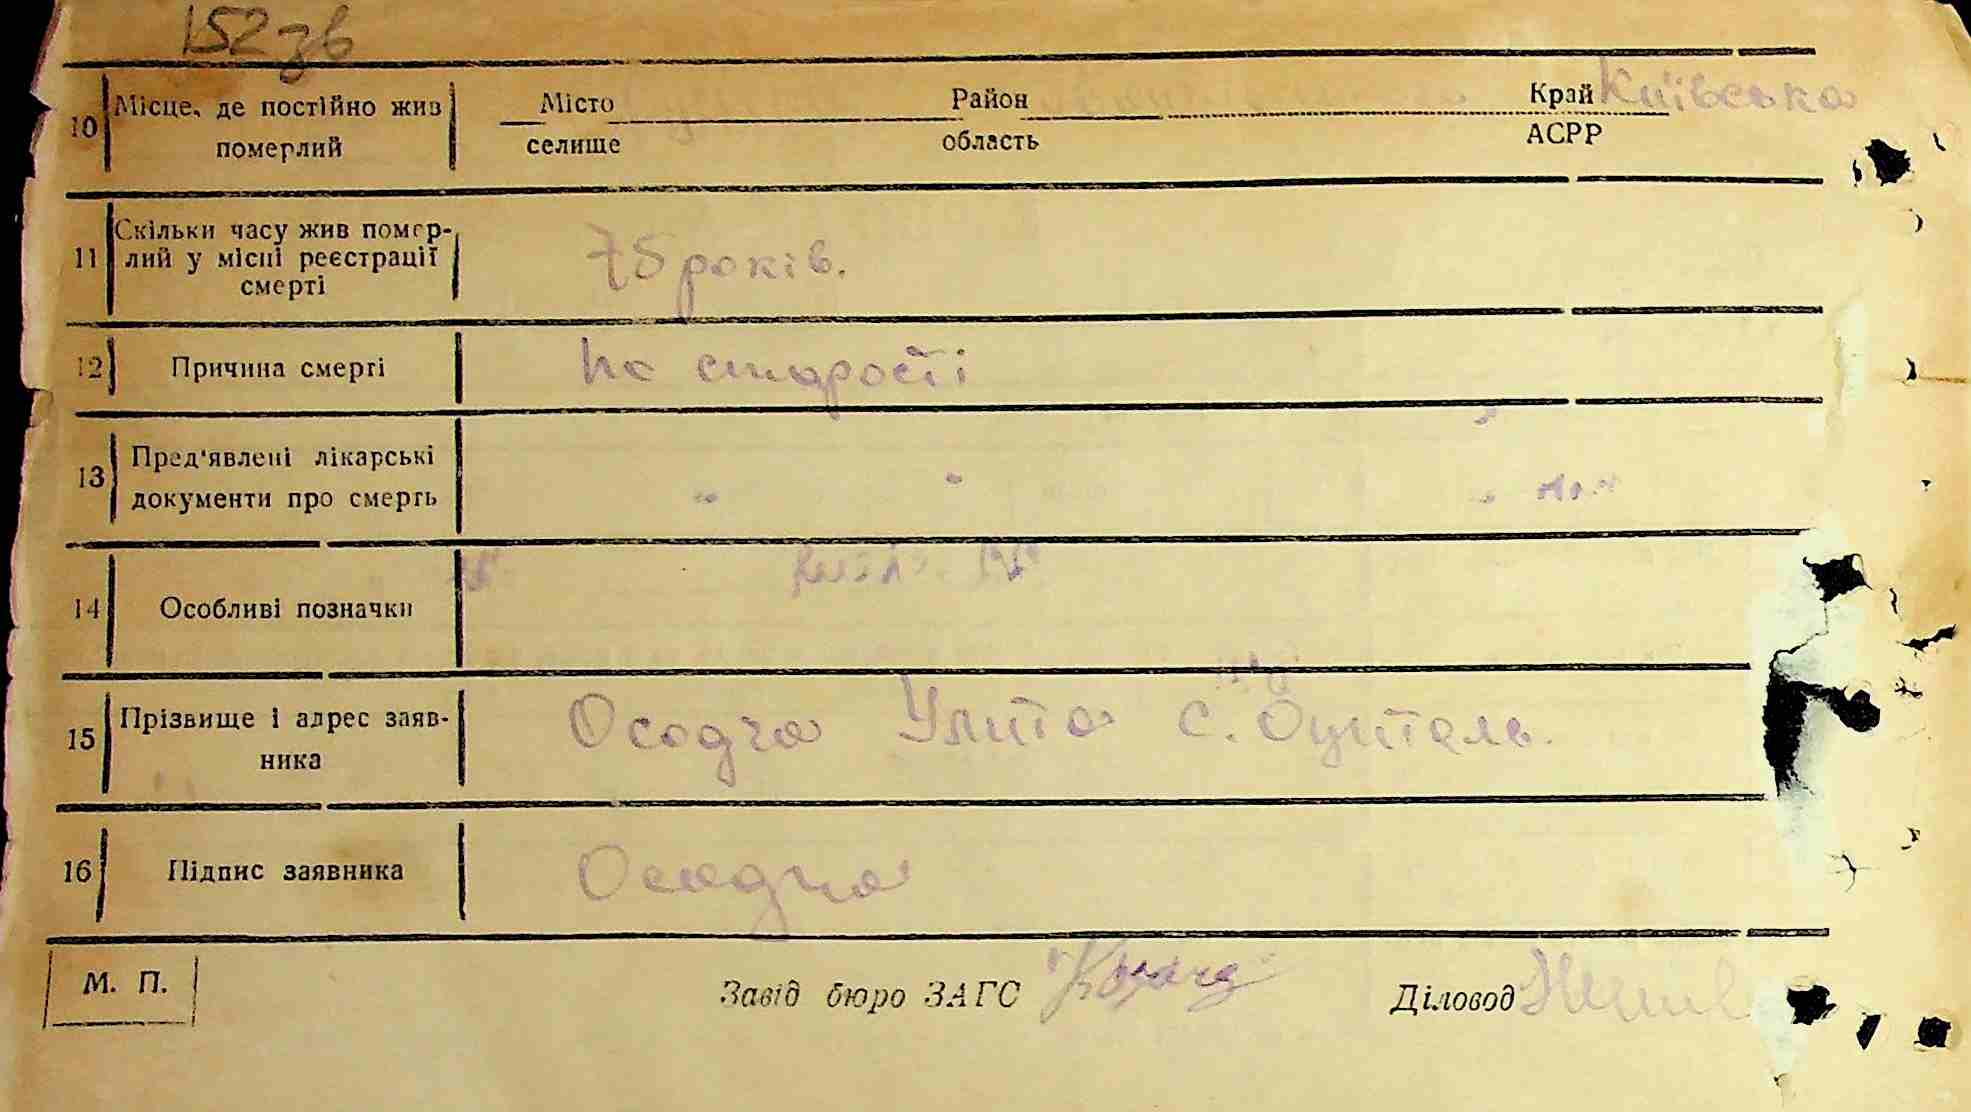 152 зв
10 Місце, де постійно жив померлий
Місто Район Край Київська
селище область АСРР
11 Скільки часу жив помер-
лий у місці реєстрації
смерті
75 років.
12 Причина смерті
По старості
13 Пред'явлені лікарські
документи про смерть
14 Особливі позначки
15 Прізвище і адрес заяв-
ника
Осодча Улита с. Оцитель.
16 Підпис заявника
Осадча
М. П. Завід бюро ЗАГС Діловод